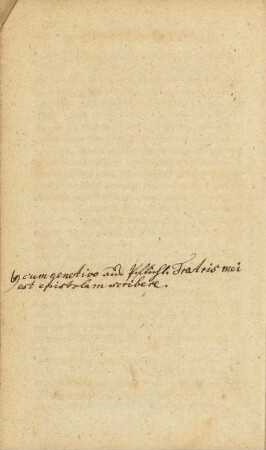 cum genetivo aus Pflicht. Fratris mei
est epistolam scribere.